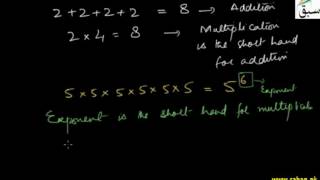 2+2+2+2 = 8 → Addition
2 × 4 = 8 → Multiplication
is the short hand
for addition
5 × 5 × 5 × 5 × 5 × 5 = 5^6 Exponent
Exponent is the short-hand for multiplica
سبق
www.sabaq.pk